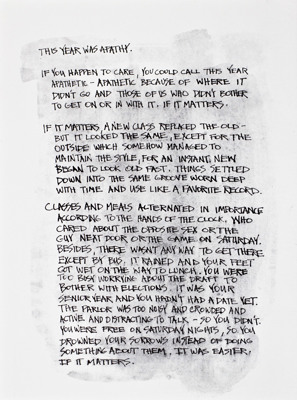 THIS YEAR WAS APATHY.
IF YOU HAPPEN TO CARE, YOU COULD CALL THIS YEAR
APATHETIC - APATHETIC BECAUSE OF WHERE IT
DIDN'T GO AND THOSE OF US WHO DIDN'T BOTHER
TO GET ON OR IN WITH IT. IF IT MATTERS.
IF IT MATTERS, A NEW CLASS REPLACED THE OLD -
BUT IT LOOKED THE SAME, EXCEPT FOR THE
OUTSIDE WHICH SOMEHOW MANAGED TO
MAINTAIN THE STYLE, FOR AN INSTANT, NEW
BEGAN TO LOOK OLD FAST. THINGS SETTLED
DOWN INTO THE SAME GROOVE WORN DEEP
WITH TIME AND USE LIKE A FAVORITE RECORD.
CLASSES AND MEALS ALTERNATED IN IMPORTANCE
ACCORDING TO THE HANDS OF THE CLOCK. WHO
CARED ABOUT THE OPPOSITE SEX OR THE
GUY NEXT DOOR OR THE GAME ON SATURDAY.
BESIDES, THERE WASN'T ANY WAY TO GET THERE
EXCEPT BY BUS. IT RAINED AND YOUR FEET
GOT WET ON THE WAY TO LUNCH. YOU WERE
TOO BUSY WORRYING ABOUT THE DRAFT TO
BOTHER WITH ELECTIONS. IT WAS YOUR
SENIOR YEAR AND YOU HADN'T HAD A DATE YET.
THE PARLOR WAS TOO NOISY AND CROWDED AND
ACTIVE AND DISTRACTING TO TALK - SO YOU DIDN'T.
YOU WERE FREE ON SATURDAY NIGHTS, SO YOU
DROWNED YOUR SORROWS INSTEAD OF DOING
SOMETHING ABOUT THEM. IT WAS EASIER,
IF IT MATTERS.